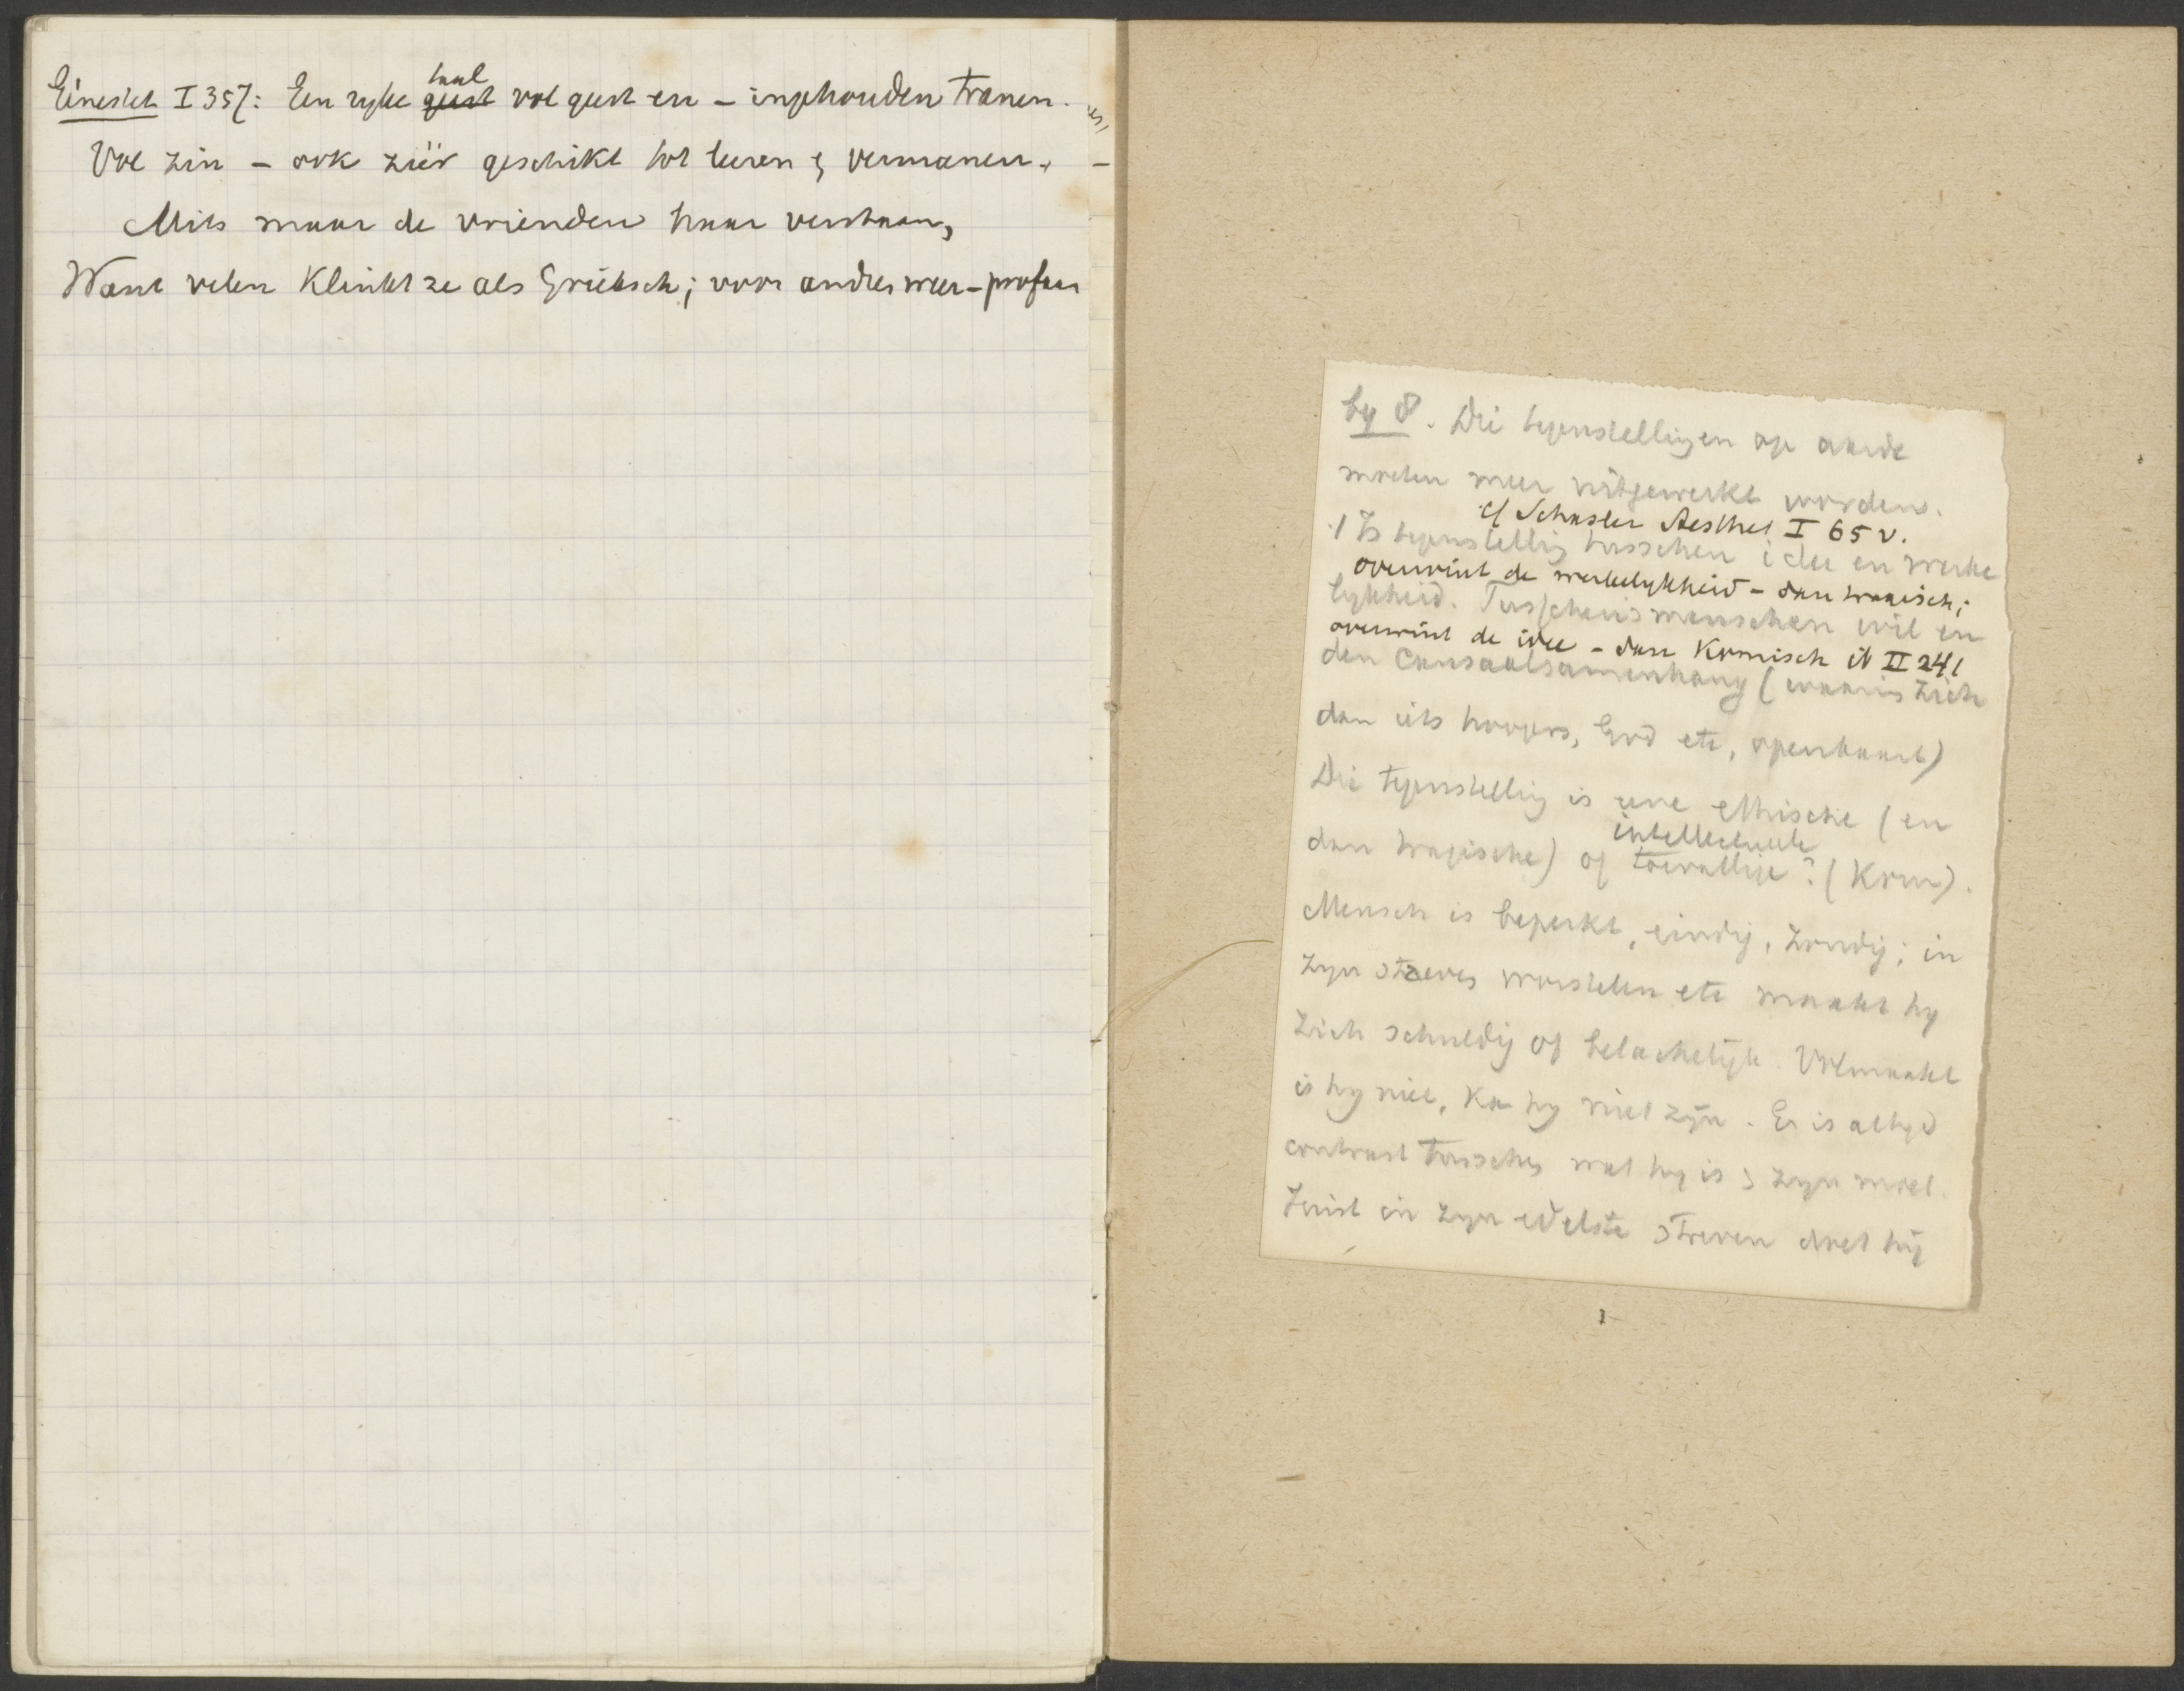 Génestet I 357: Een ryke geest taal vol geest en - ingehouden tranen.
Vol zin - ook zéér geschikt tot leeren & vermanen, -
Mits maar de vrienden haar verstaan,
Want velen klinkt ze als Grieksch; voor andren weer - profaan
by 8. Die tegenstellingen op aarde
moeten meer uitgewerkt worden.
cf Schasler Aesthet I 65 v.
1 Is tegenstelling tusschen idee en werke
overwint de werkelykheid - dan tragisch;
lykheid. Tusschen 's menschen wil en
overwint de idee - dan Komisch ib II 241
den Causaalsamenhang (waarin zich
dan iets hoogers, God etc, openbaart)
Die tegenstelling is eene ethische (en
intellectueele
dan tragische) of toevallige? (Kom).
Mensch is beperkt, eindig, zondig; in
zyn streven worstelen etc maakt hy
zich schuldig of belachelijk. Volmaakt
is hy niet, Kan hy niet zijn. Er is altyd
contrast tusschen wat hy is & zyn moet.
Juist in zyn edelste streven doet hij